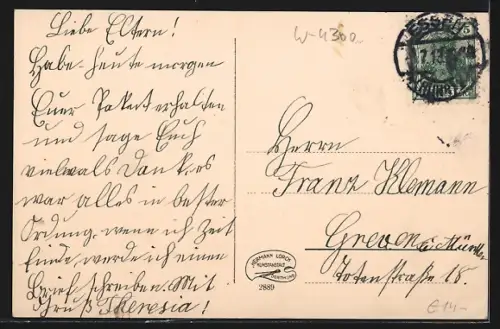 Liebe Eltern!
Habe heute morgen
Euer Paket erhalten
und sage Euch
vielmals Dank, es
war alles in bester
Ordnung. wenn ich Zeit
finde, werde ich einen
Brief schreiben. Mit
Gruß Theresia!
W-4300
ESSEN
(RUHR)
5
Herrn
Franz Klemann
Greven b/Münster
Totenstraße 18.
HERMANN LORCH
KUNSTANSTALT
DORTMUND
2889
€14-